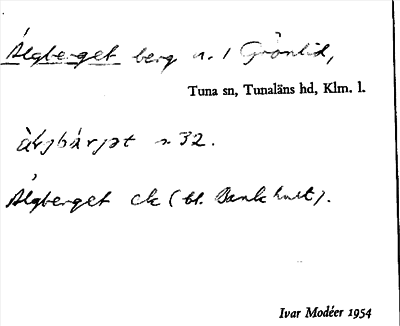 Älgberget berg n. / Grönlid,
Tuna sn, Tunaläns hd, Klm. l.
n 32.
Älgberget ck (bl. Bankhult).
Ivar Modéer 1954